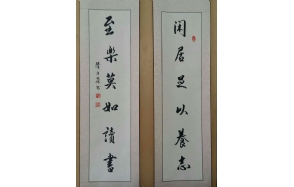 閑居足以養志
至樂莫如讀書